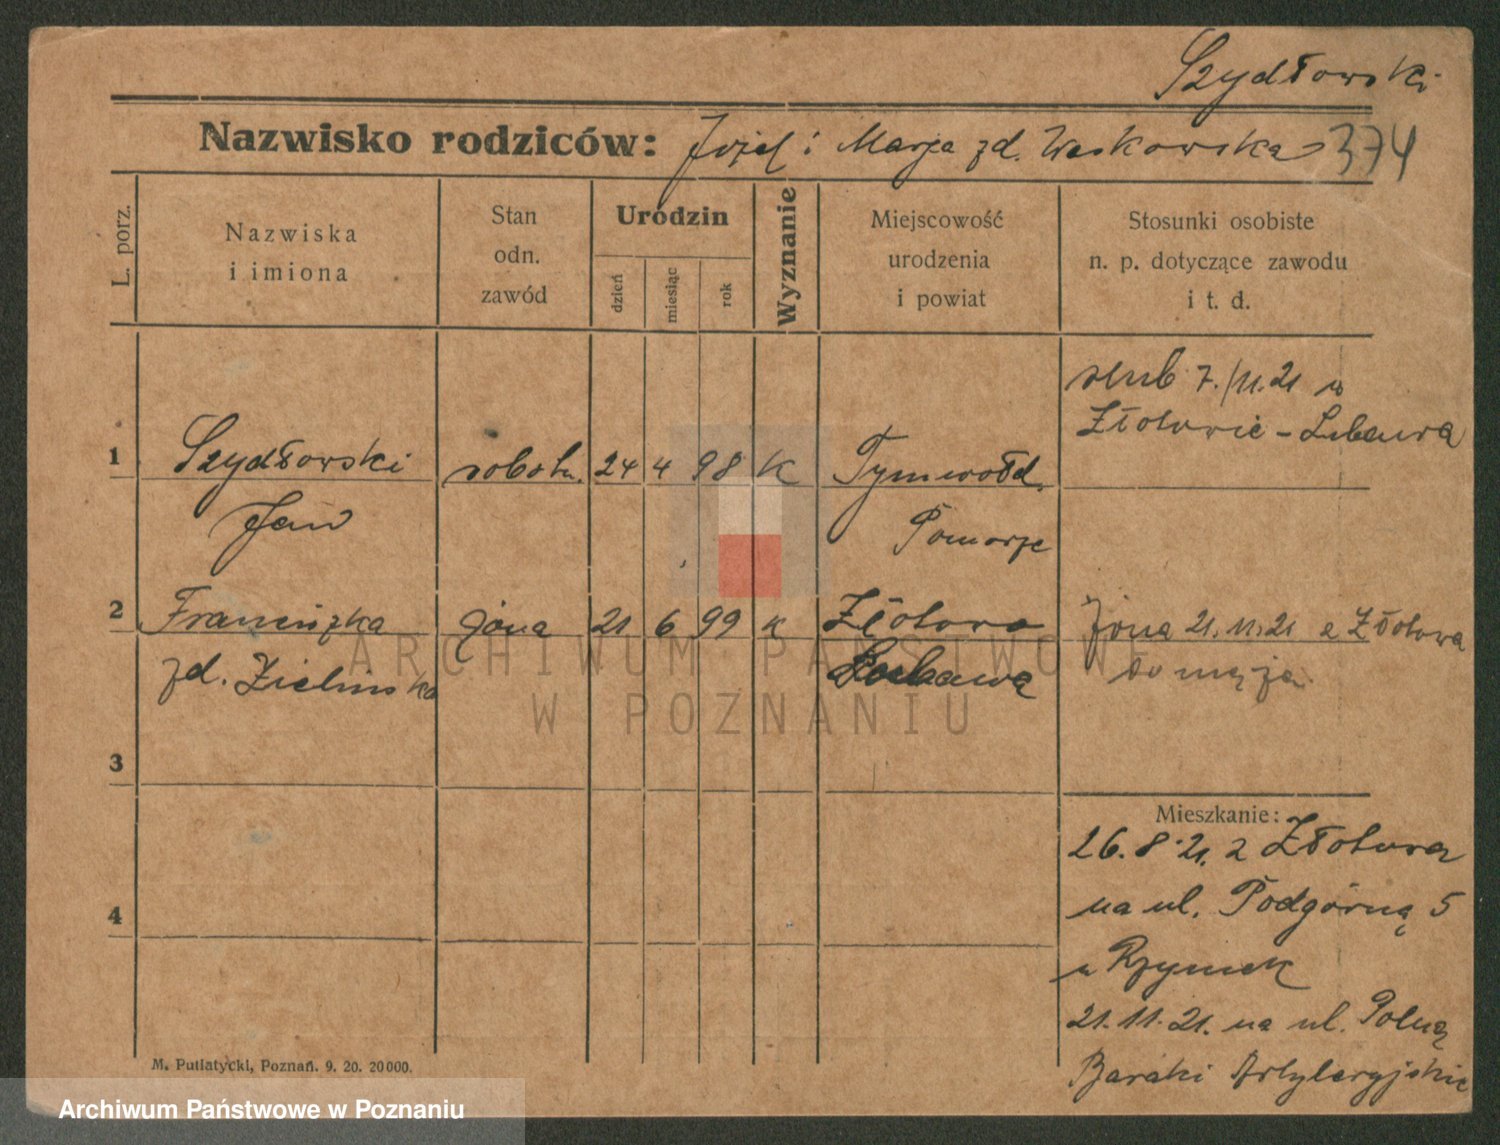 Szydłowski
Nazwisko rodziców: Józef i Marja zd. Waskowska 374
L. porz.
Nazwiska
i imiona
Stan
odn.
zawód
Urodzin
dzień
miesiąc
rok
Wyznanie
Miejscowość
urodzenia
i powiat
Stosunki osobiste
n. p. dotyczące zawodu
i t. d.
ślub 7./11.21 w
Złotowie - Lubawa
1 Szydłowski robotn. 24 4 98 K Tymwałd.
Jan Pomorze
2 Franciszka żona 21 6 99 K Złotowo żona 21.11.21 z Złotowa
zd. Zielinska Lubawa do męża
3
4
Mieszkanie:
26.8.21. z Złotowa
na ul. Podgórną 5
u Rzymek
21.11.21. na ul. Polną
Baraki Artyleryjskie
M. Putiatycki, Poznań. 9. 20. 20000.
ARCHIWUM PAŃSTWOWE
W POZNANIU
Archiwum Państwowe w Poznaniu